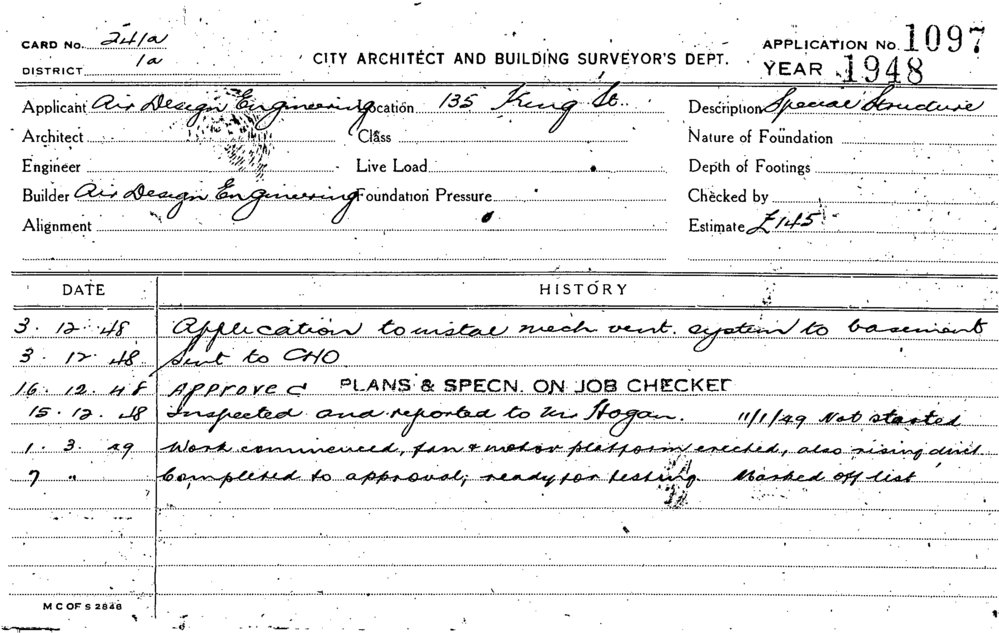 CARD No. 241a
APPLICATION No. 1097
DISTRICT 1a
CITY ARCHITECT AND BUILDING SURVEYOR'S DEPT.
YEAR 1948
Applicant Air Design Engineering Location 135 King St. Description Special Structure
Architect Class Nature of Foundation
Engineer Live Load Depth of Footings
Builder Air Design Engineering Foundation Pressure Checked by
Alignment Estimate £145
DATE HISTORY
3. 12. 48 Application to instal mech vent. system to basement
3. 12. 48 Sent to CHO
16. 12. 48 Approved PLANS & SPECN. ON JOB CHECKED
15. 12. 48 Inspected and reported to Mr Hogan. 11/1/49 Not started
1. 3. 49 Work commenced, fan & motor platform erected, also rising duct.
7 " Completed to approval; ready for testing. Marked off list
M C OF S 2848